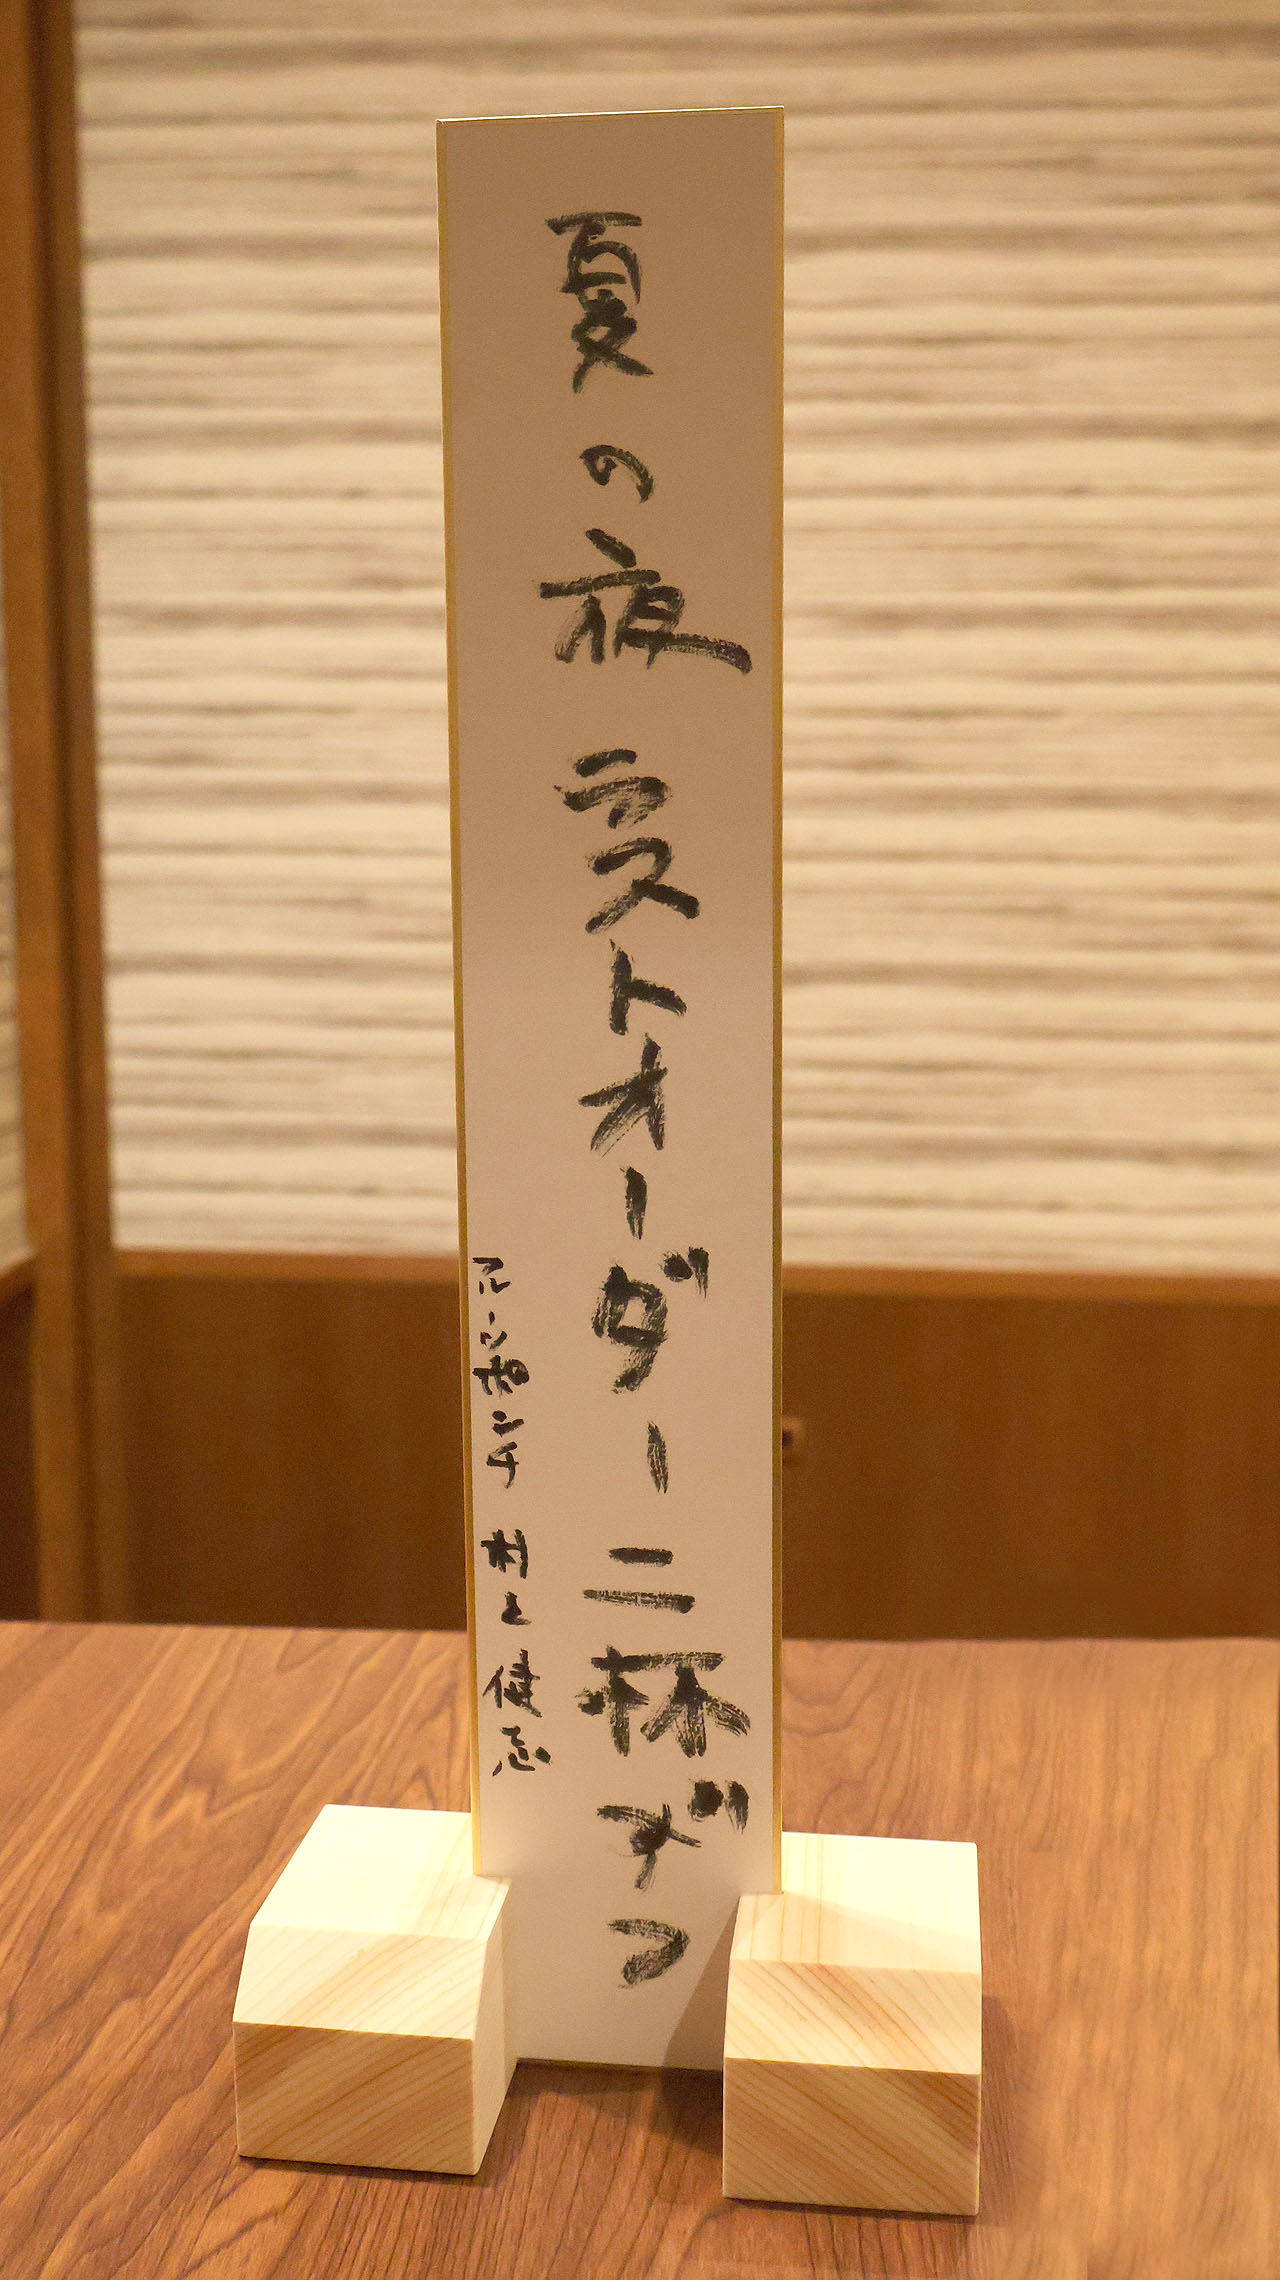 夏の夜ラストオーダー二杯ずつ
フルーツポンチ 村上健志